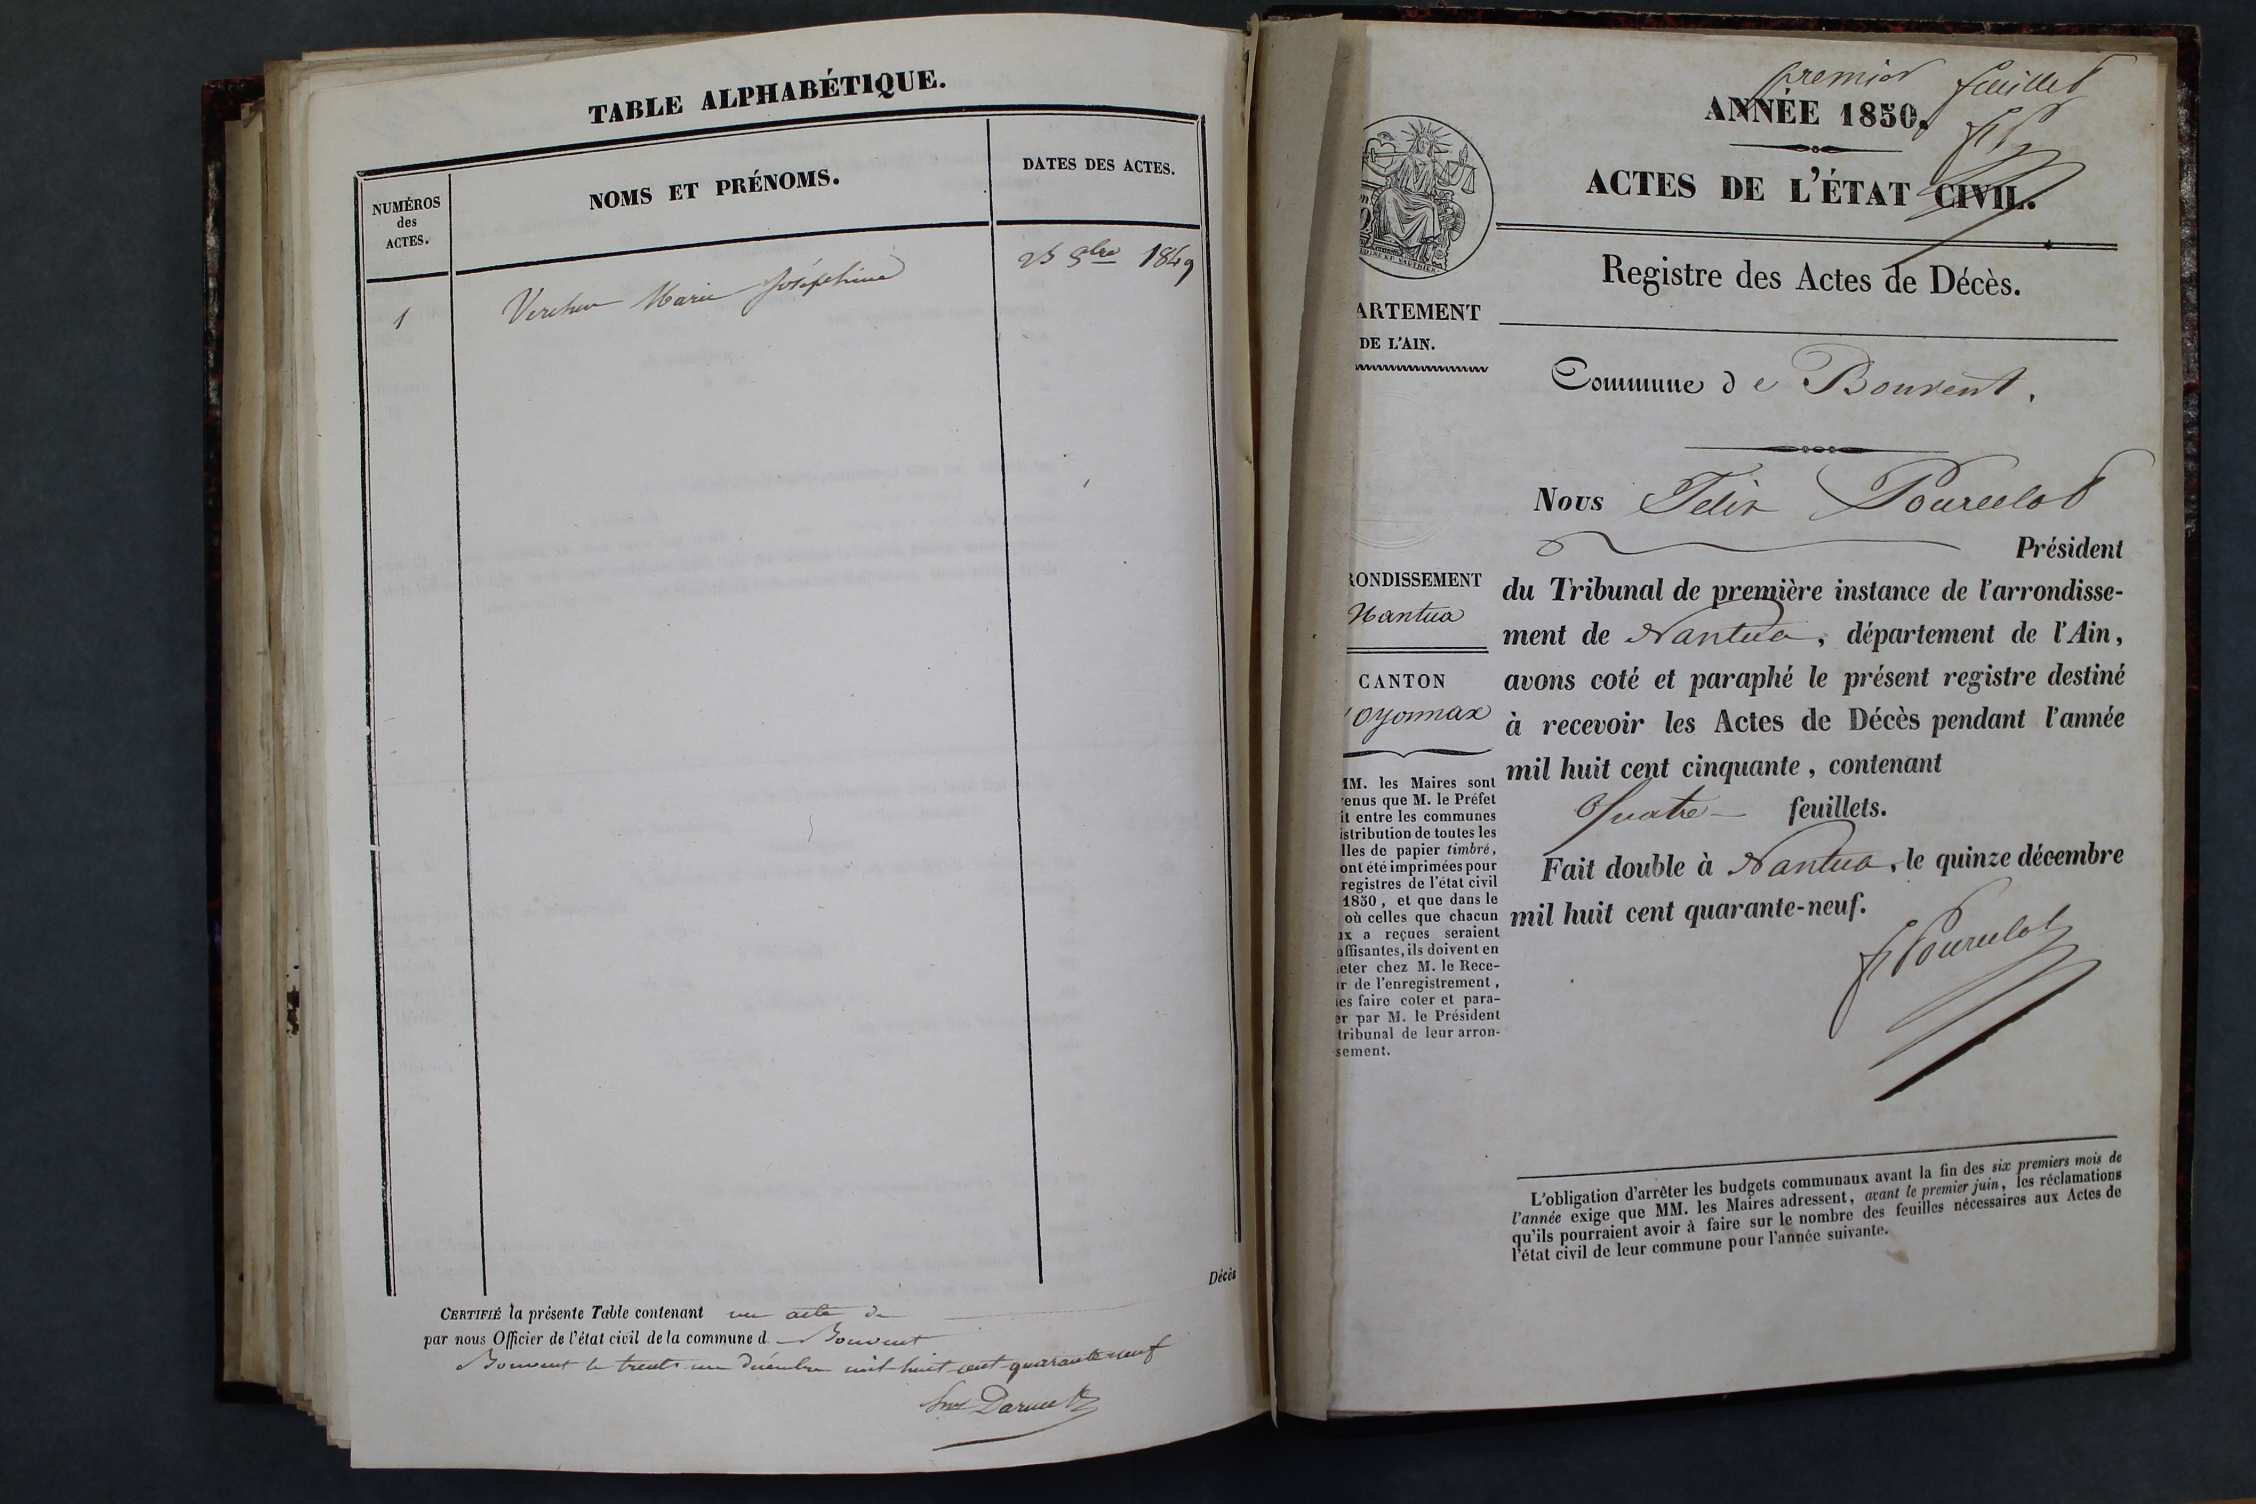 TABLE ALPHABÉTIQUE.
NUMÉROS
des
ACTES.
NOMS ET PRÉNOMS.
DATES DES ACTES.
1
Marie Joséphine
1849
Décès
CERTIFIÉ la présente Table contenant un acte de
par nous Officier de l'état civil de la commune d Bouvent
Bouvent le trente un décembre mil huit cent quarante neuf
premier feuillet
ANNÉE 1850.
ACTES DE L'ÉTAT CIVIL.
Registre des Actes de Décès.
ARTEMENT
DE L'AIN.
Commune de Bouvent.
Nous Félix Pourcelot
Président
du Tribunal de première instance de l'arrondisse-
ment de Nantua, département de l'Ain,
avons coté et paraphé le présent registre destiné
à recevoir les Actes de Décès pendant l'année
mil huit cent cinquante, contenant
Quatre feuillets.
Fait double à Nantua, le quinze décembre
mil huit cent quarante-neuf.
F Pourcelot
RONDISSEMENT
Nantua
CANTON
Oyonnax
MM. les Maires sont
enus que M. le Préfet
it entre les communes
istribution de toutes les
lles de papier timbré,
ont été imprimées pour
registres de l'état civil
1850, et que dans le
où celles que chacun
ux a reçues seraient
uffisantes, ils doivent en
eter chez M. le Rece-
ur de l'enregistrement,
les faire coter et para-
er par M. le Président
tribunal de leur arron-
sement.
L'obligation d'arrêter les budgets communaux avant la fin des six premiers mois de
l'année exige que MM. les Maires adressent, avant le premier juin, les réclamations
qu'ils pourraient avoir à faire sur le nombre des feuilles nécessaires aux Actes de
l'état civil de leur commune pour l'année suivante.